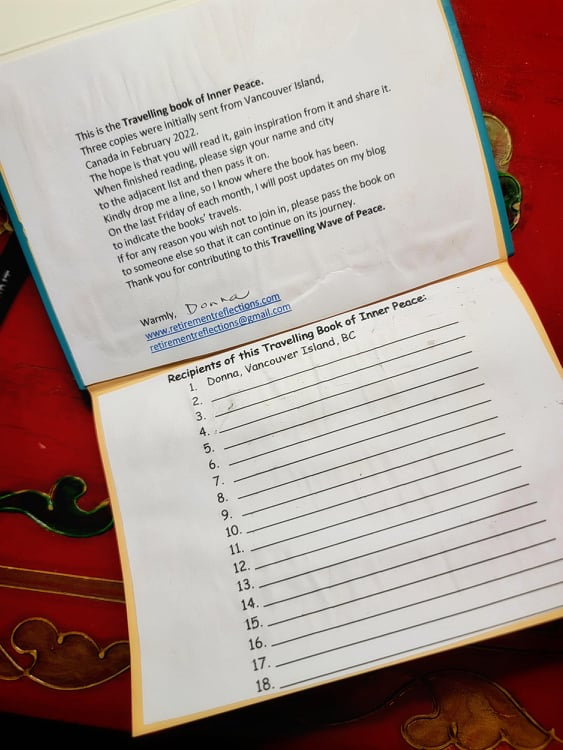 This is the Travelling book of Inner Peace.
Three copies were initially sent from Vancouver Island,
Canada in February 2022.
The hope is that you will read it, gain inspiration from it and share it.
When finished reading, please sign your name and city
to the adjacent list and then pass it on.
Kindly drop me a line, so I know where the book has been.
On the last Friday of each month, I will post updates on my blog
to indicate the books' travels.
If for any reason you wish not to join in, please pass the book on
to someone else so that it can continue on its journey.
Thank you for contributing to this Travelling Wave of Peace.
Warmly, Donna
www.retirementreflections.com
retirementreflections@gmail.com
Recipients of this Travelling Book of Inner Peace:
1. Donna, Vancouver Island, BC
2.
3.
4.
5.
6.
7.
8.
9.
10.
11.
12.
13.
14.
15.
16.
17.
18.